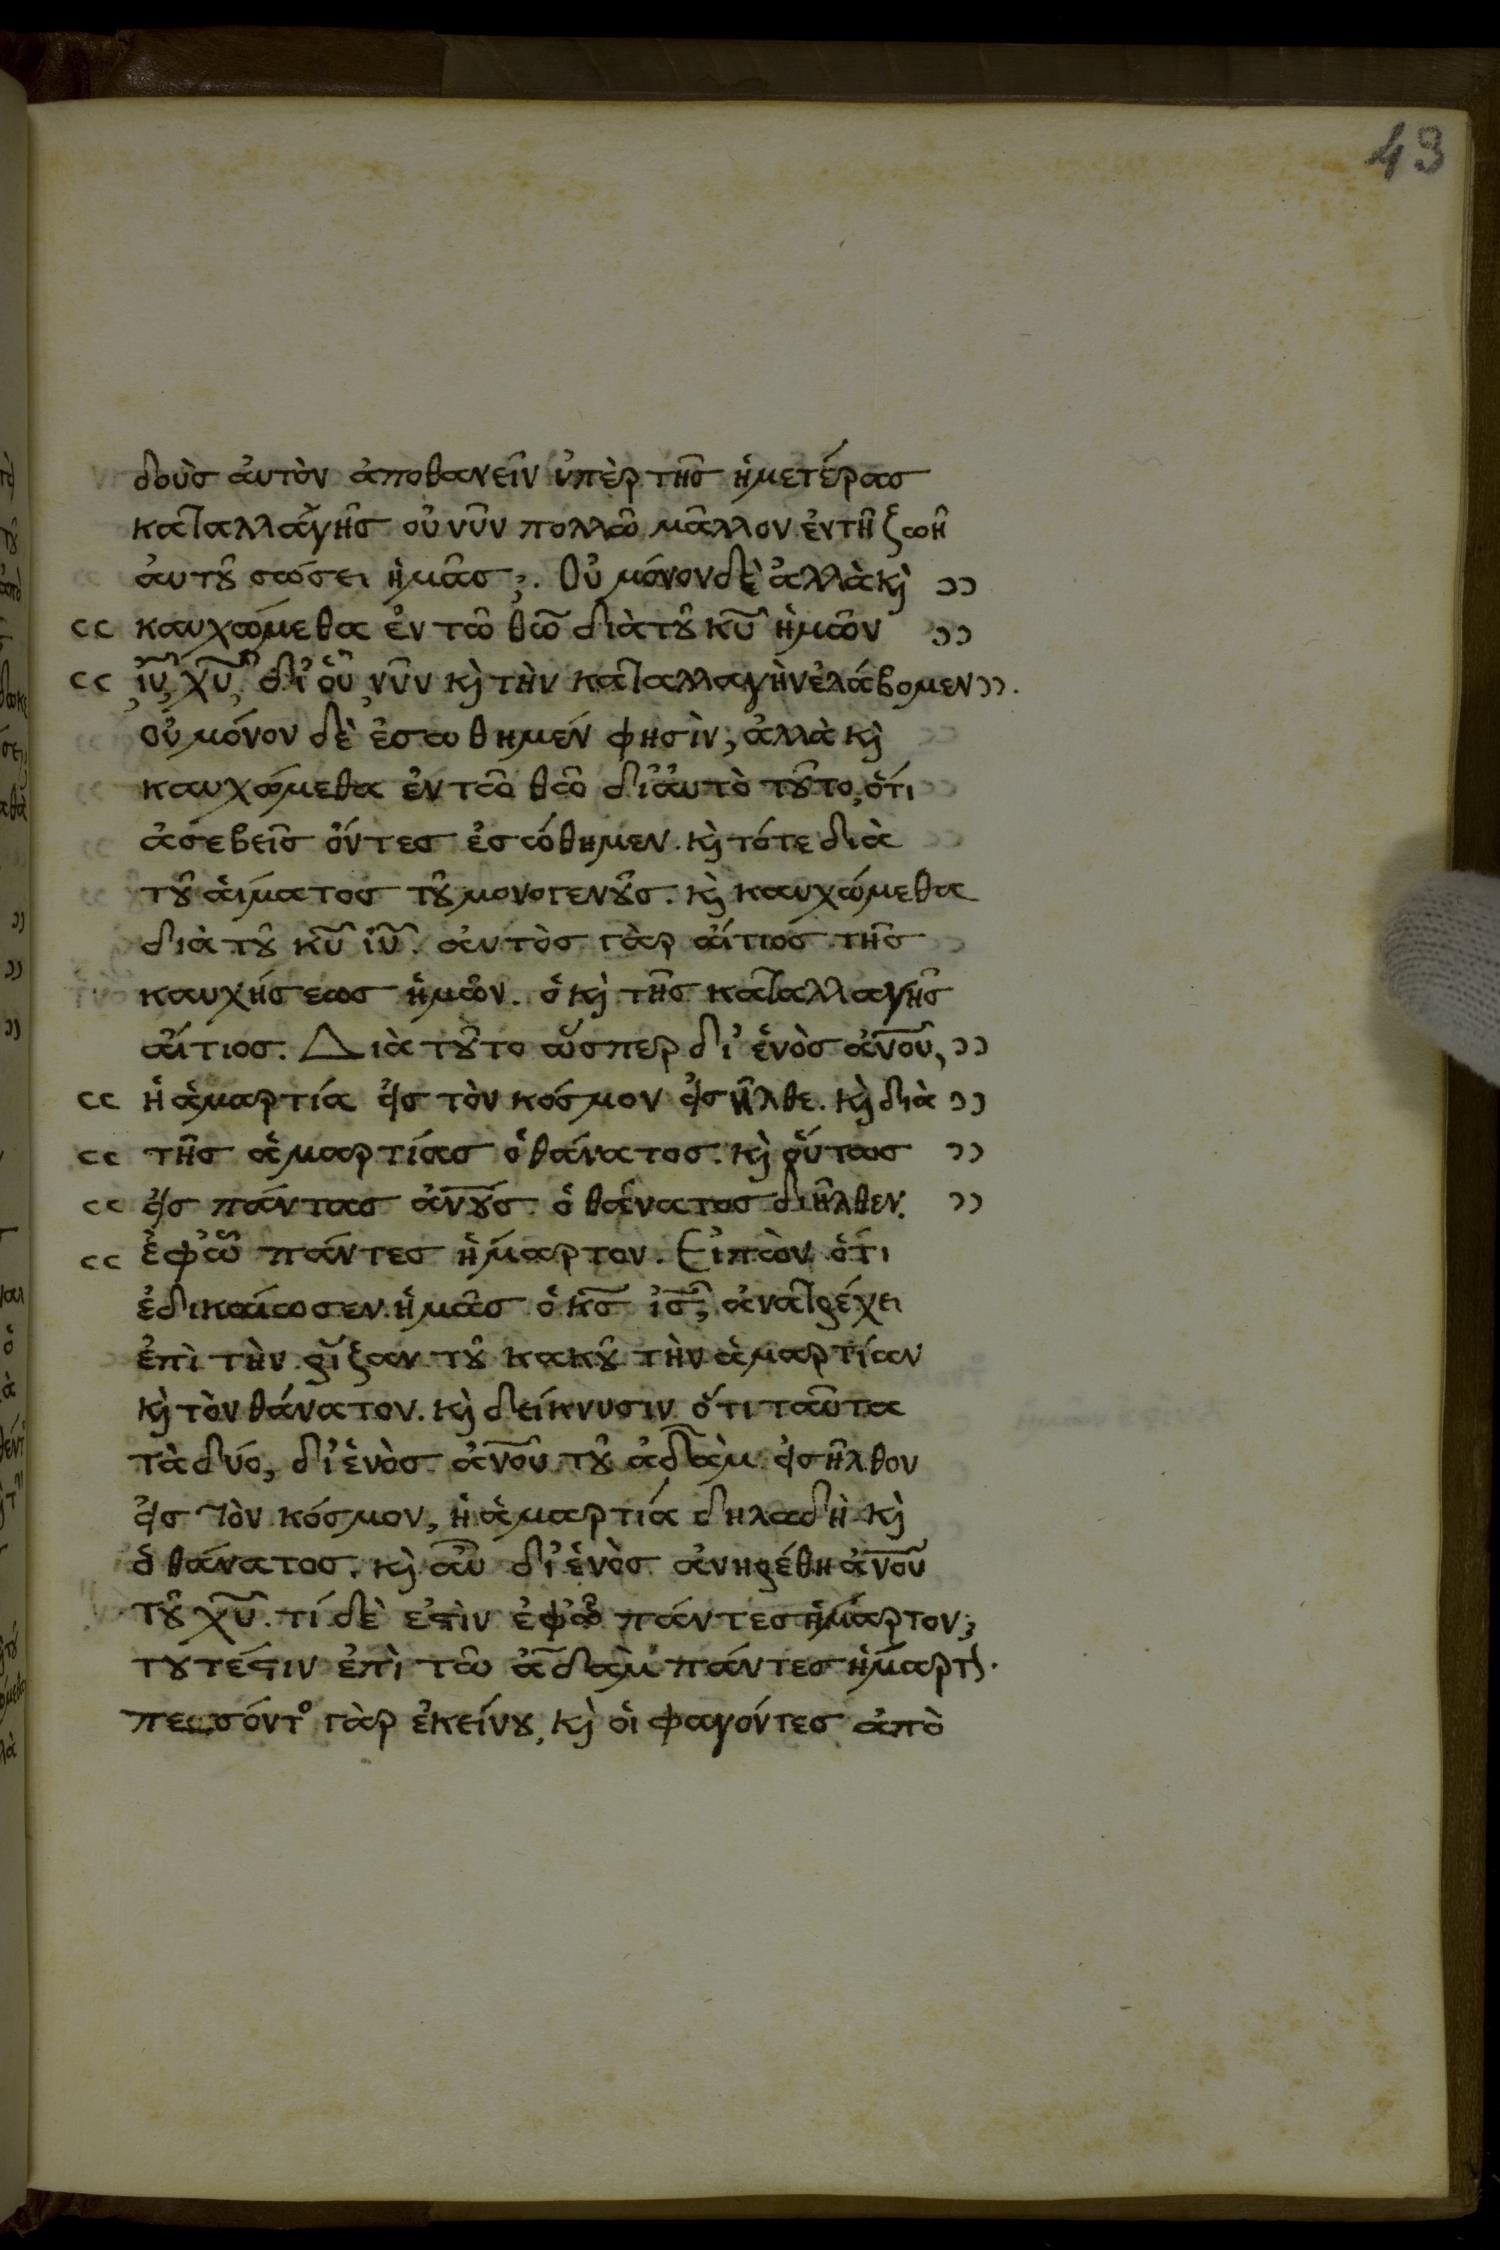 43
δοὺς ἀυτὸν ἀποθανεῖν ὑπὲρ τῆς ἡμετέρας
καταλλαγῆς οὐ νῦν πολλῶ μᾶλλον ἐν τῆ ζωῆ
ἀυτοῦ σώσει ἡμᾶς;. Οὐ μόνον δὲ ἀλλὰ κὶ ››
‹‹ καυχώμεθα ἐν τῶ θῶ διὰ τοῦ κυ ἡμῶν ››
‹‹ ιυ, χυ, δι' οὗ, νῦν κὶ τὴν καταλλαγὴν ἐλάβομεν ››.
οὐ μόνον δὲ ἐσωθημέν φησὶν, ἀλλὰ κὶ
καυχώμεθα ἐν τῶ θῶ δι' ἀυτὸ τοῦτο, ὅτι
ἀσεβεῖς ὄντες ἐσώθημεν. κὶ τότε διὰ
τοῦ αἵματος τοῦ μονογενοῦς. κὶ καυχώμεθα
διὰ τοῦ κυ ιυ. αυτὸς γὰρ αἴτιος τῆς
καυχήσεως ἡμῶν. ὁ κὶ τῆς καταλλαγῆς
αἴτιος. Διὰ τοῦτο ὥσπερ δι' ἑνὸς ανου, ››
‹‹ ἡ ἁμαρτία εἰς τὸν κόσμον εἰσῆλθε. κὶ διὰ ››
‹‹ τῆς ἁμαρτίας ὁ θάνατος. κὶ οὕτως ››
‹‹ εἰς πάντας ανους ὁ θάνατος διῆλθεν. ››
‹‹ ἐφ' ὧ πάντες ἥμαρτον. Εἰπὼν ὅτι
ἐδικαίωσεν ἡμᾶς ὁ κς ις, ἀνατρέχει
ἐπὶ τὴν ῥίζαν τοῦ κακοῦ τὴν ἁμαρτίαν
κὶ τὸν θάνατον. κὶ δείκνυσιν ὅτι ταῦτα
τὰ δύο, δι' ἑνὸς ανου τοῦ ἀδὰμ εἰσῆλθον
εἰς τὸν κόσμον, ἡ ἁμαρτία δηλαδὴ κὶ
ὁ θάνατος. κὶ αὖ δι' ἑνὸς ἀνηρέθη ανου
τοῦ χυ. τί δὲ ἐστὶν ἐφ' ὧ πάντες ἥμαρτον;
τουτέστιν ἐπὶ τῶ ἀδὰμ πάντες ἥμαρτον.
πεσόντος γὰρ ἐκείνου, κὶ οἱ φαγόντες ἀπὸ